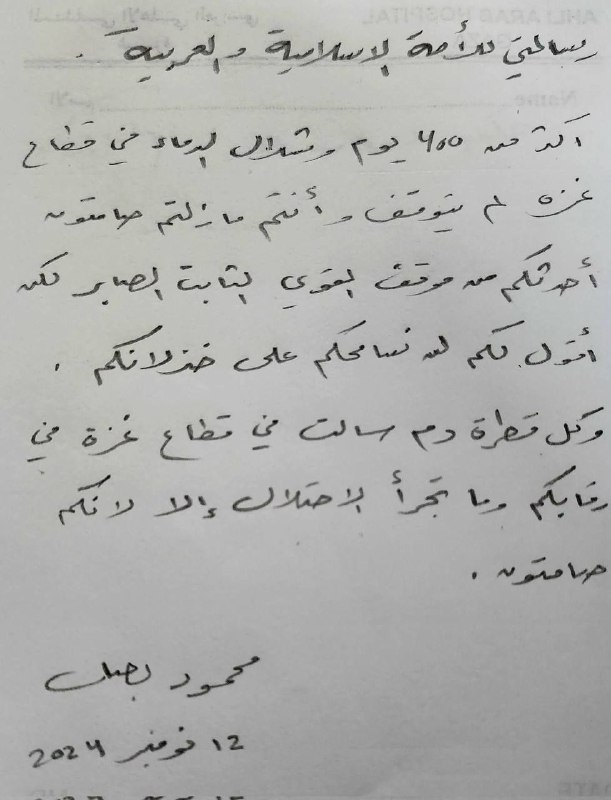 رسالتي للأمة الاسلامية والعربية .
اكثر من 400 يوم وشلال الدماء في قطاع
غزة لم يتوقف وأنتم مازلتم صامتون
أحدثكم من موقف القوي الثابت الصابر لكن
أقول لكم لن نسامحكم على خذلانكم .
وكل قطرة دم سالت في قطاع غزة في
رقابكم وما تجرأ الاحتلال إلا لانكم
صامتون .
محمود بصل
12 نوفمبر 2024
AHLI ARAB HOSPITAL
Name